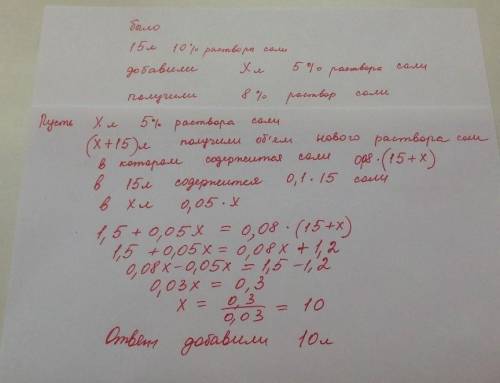 было
15л 10% раствора соли
добавили х л 5% раствора соли
получили 8% раствор соли
Пусть х л 5% раствора соли
(х+15)л получили об'ем нового раствора соли
в котором содержится соли 0,08·(15+х)
в 15л содержится 0,1·15 соли
в х л 0,05·х
1,5 + 0,05х = 0,08·(15+х)
1,5 + 0,05х = 0,08х + 1,2
0,08х-0,05х = 1,5-1,2
0,03х = 0,3
х = 0,3/0,03 = 10
Ответ добавили 10л